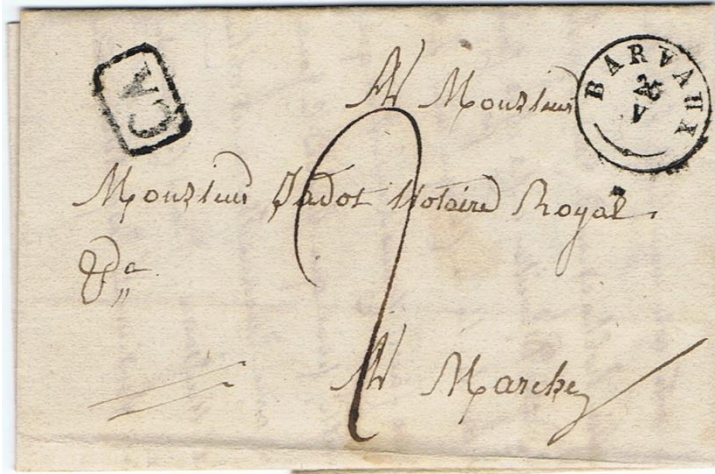 CA
BARVAUX
25
V
A Monsieur
Monsieur Jadot Notaire Royal.
A Marche